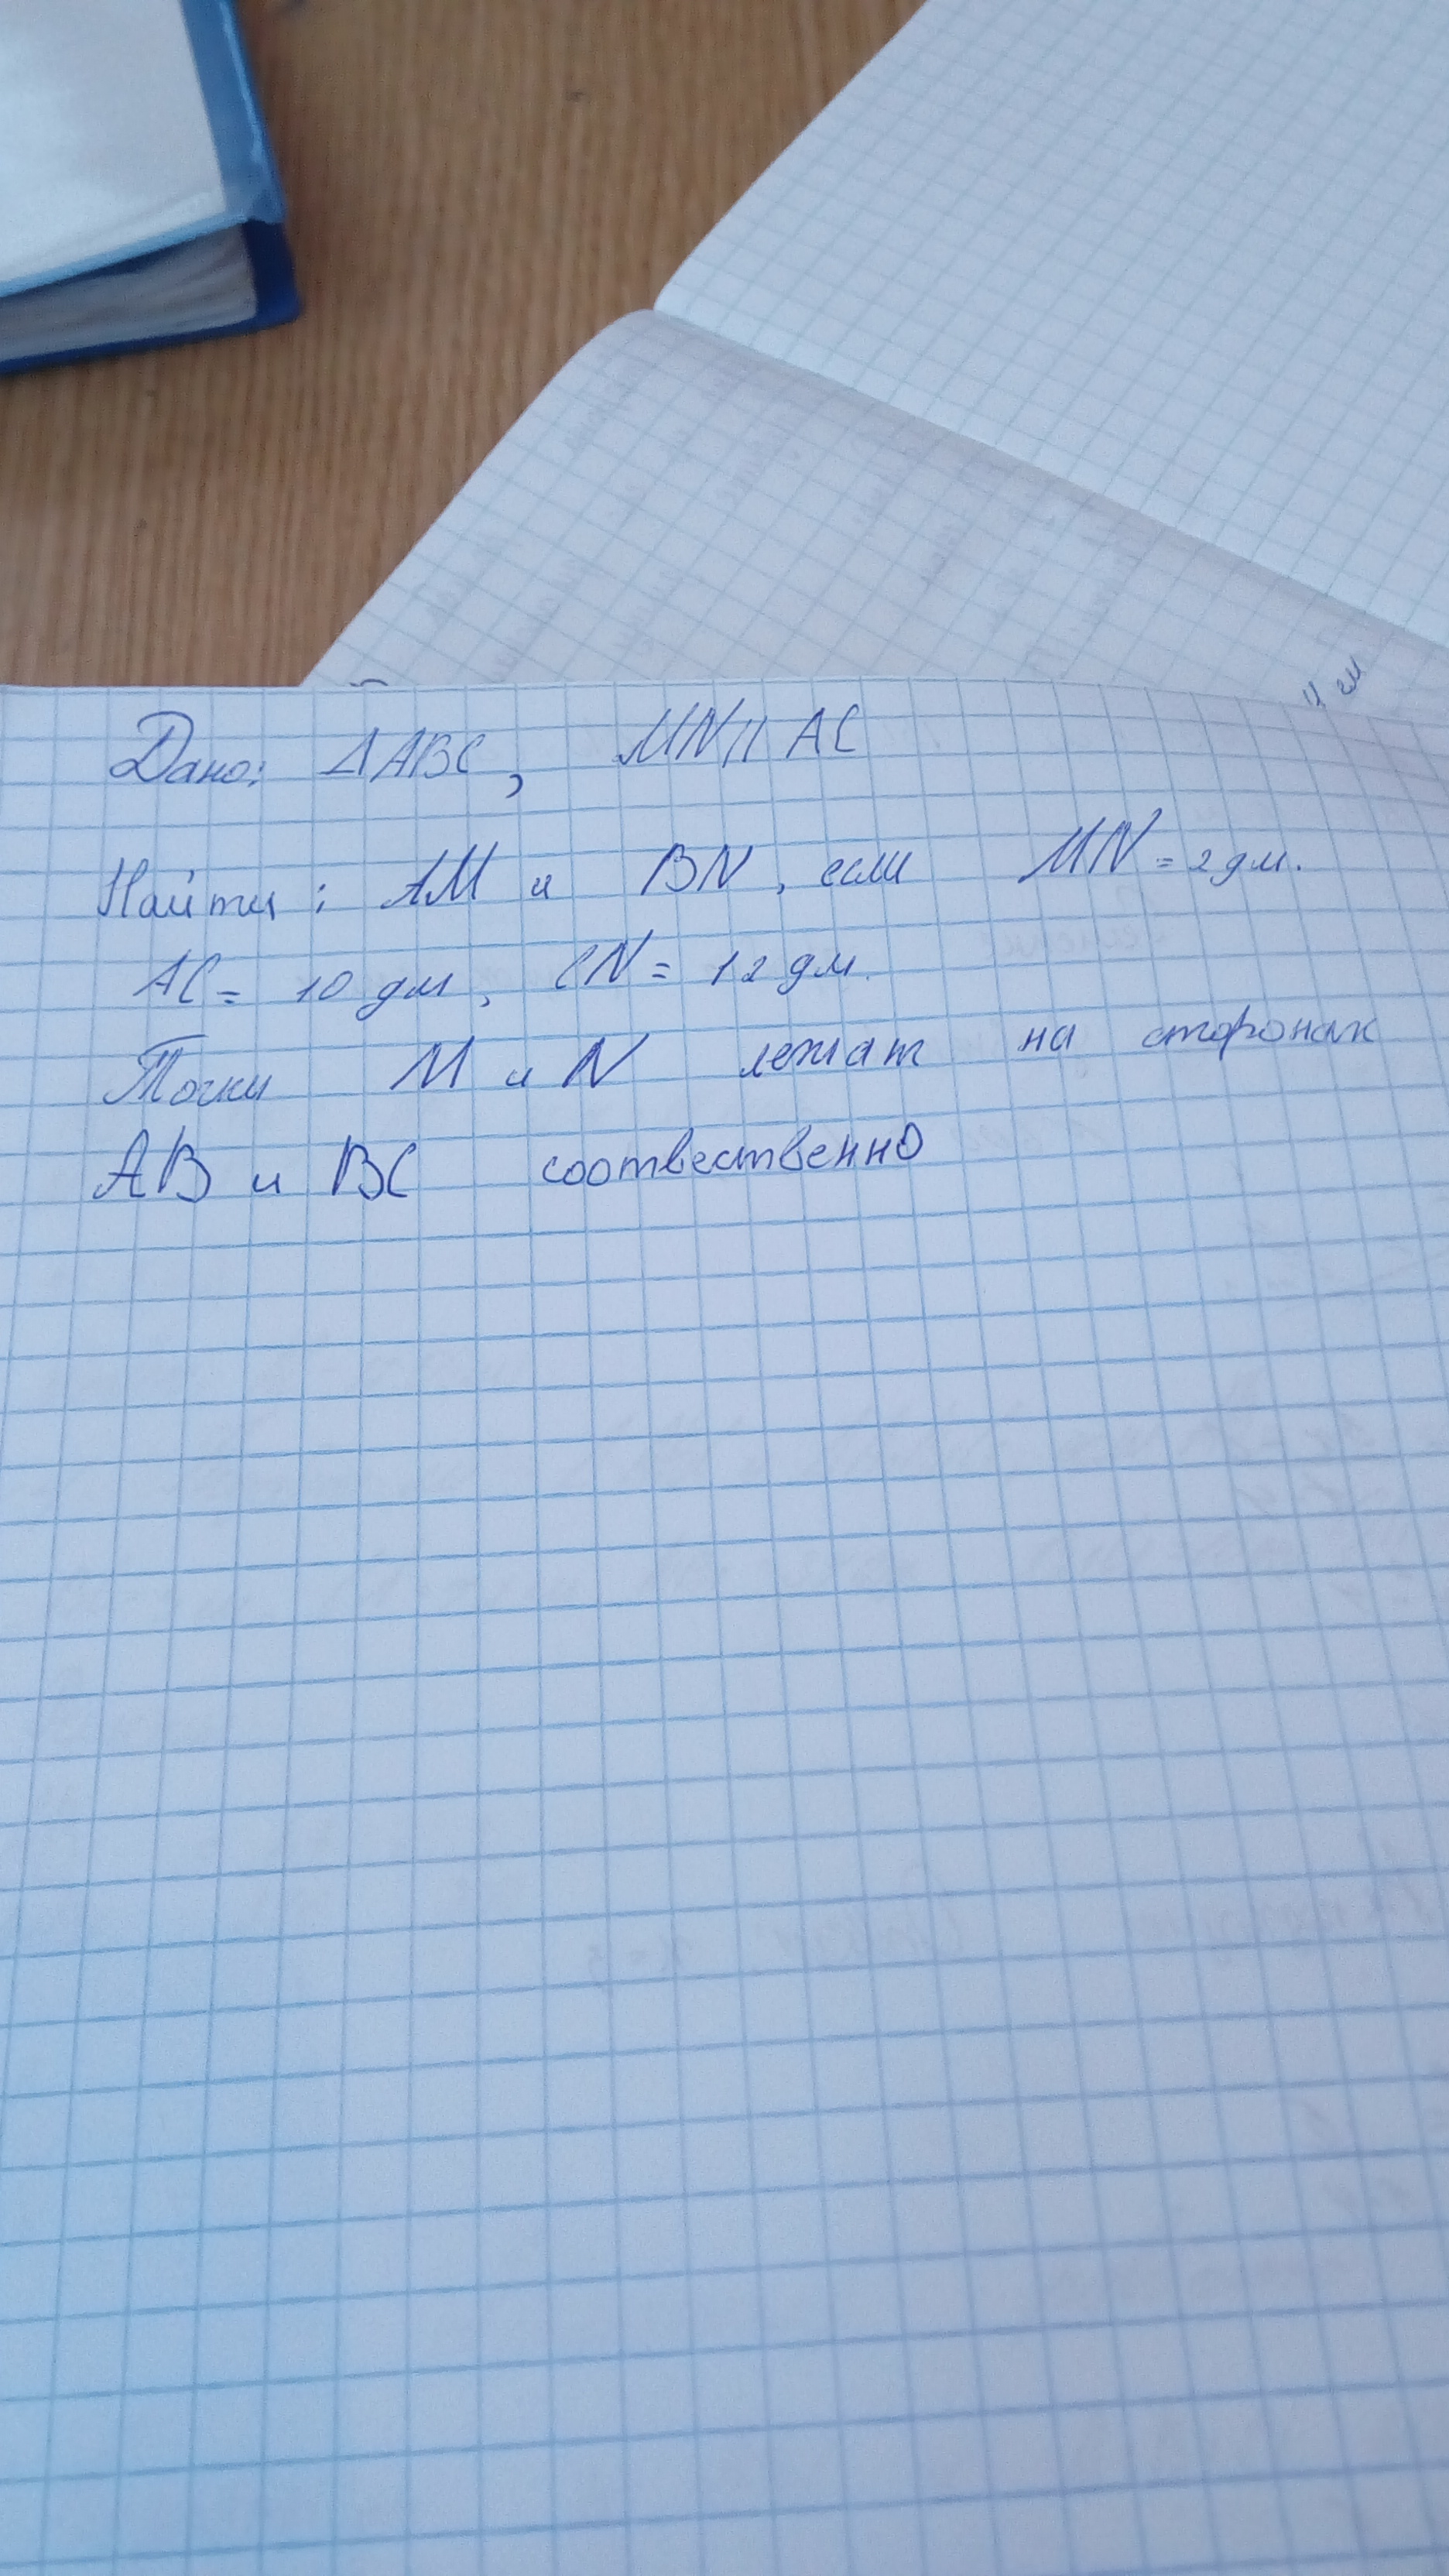 Дано: ΔABC, MN || AC
Найти: AM и BN, если MN = 2 дм.
AC = 10 дм, CN = 12 дм.
Точки M и N лежат на сторонах
AB и BC соотвественно